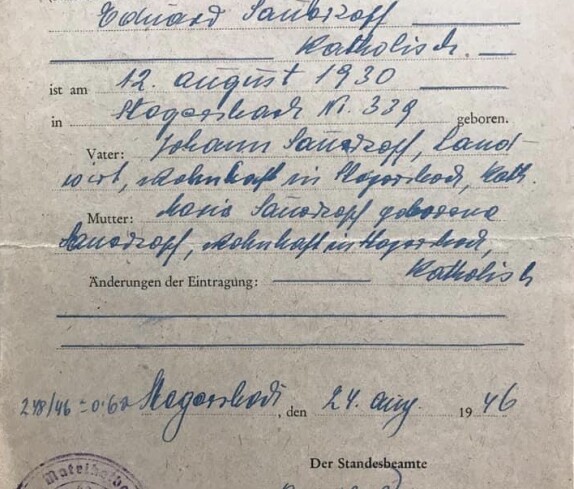 Eduard Sauerzopf
Katholisch.
ist am 12. August 1930
in Stegersbach Nr. 339 geboren.
Vater: Johann Sauerzopf, Land-
wirt, wohnhaft in Stegersbach, kath.
Mutter: Maria Sauerzopf geborene
Sauerzopf, wohnhaft in Stegersbach,
Katholisch
Änderungen der Eintragung:
248/46 Stegersbach, den 24. Aug. 1946
Der Standesbeamte